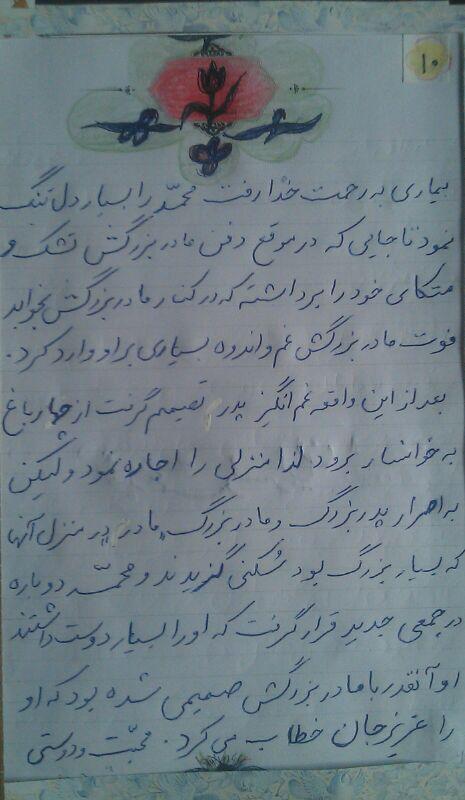 ۱۰
بیماری به رحمت خدا رفت محمّد را بسیار دل تنگ
نمود تا جایی که در موقع دفن مادربزرگش تشک و
متکای خود را برداشته که در کنار مادربزرگش بخوابد
فوت مادربزرگش غم و اندوه بسیاری بر او وارد کرد.
بعد از این واقعه غم انگیز پدر تصمیم گرفت از چهارباغ
به خوانسار برود لذا منزلی را اجاره نمود ولیکن
به اصرار پدربزرگ و مادربزرگ مادر در منزل آنها
که بسیار بزرگ بود سُکنی گزیدند و محمّد دوباره
در جمعی جدید قرار گرفت که او را بسیار دوست داشتند
او آنقدر با مادربزرگش صمیمی شده بود که او
را عزیزجان خطاب می کرد. محبّت و دوستی